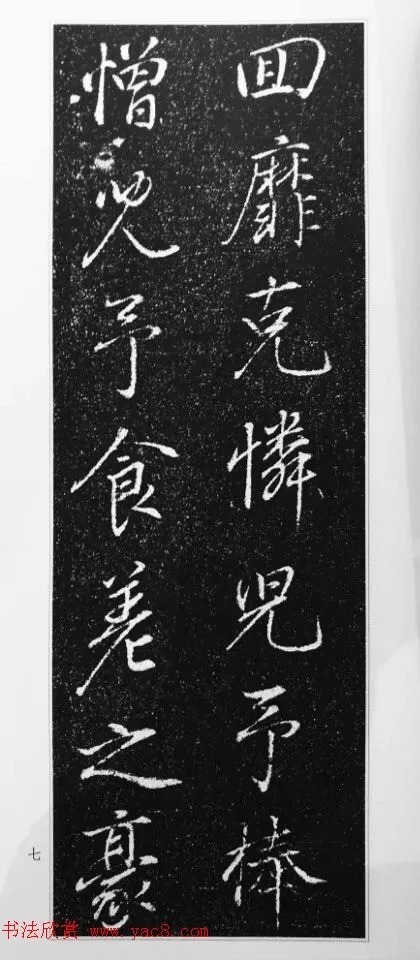 回靡克憐兒予棒
憎兒予食羞之豪
七
书法欣赏 www.yac8.com